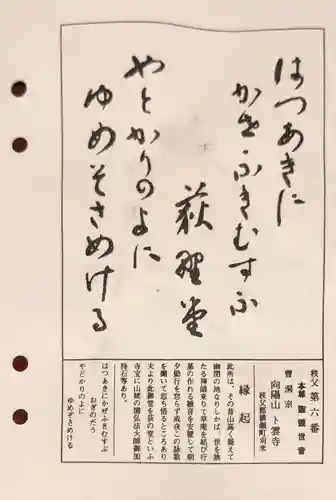 はつあきに
かぜふきむすふ
荻野堂
やとかりのよに
ゆめそさめける
秩父 第六番
本尊 聖観世音
曹洞宗
向陽山 卜雲寺
秩父郡横瀬町苅米
縁起
此所は、その昔山高く聳えて
幽閑の地なりしかば、世を遁
たる禅師来りて草庵を結び行
基の作れる観音を安置して朝
夕勤行を怠らず或夜この詠歌
を聞いて忽ち悟るところあり
夫より此御堂を荻の堂といふ
寺宝に山姥の歯弘法大師御加
持石等あり。
はつあきにかぜふきむすぶ
おぎのだう
やどかりのよに
ゆめぞさめける